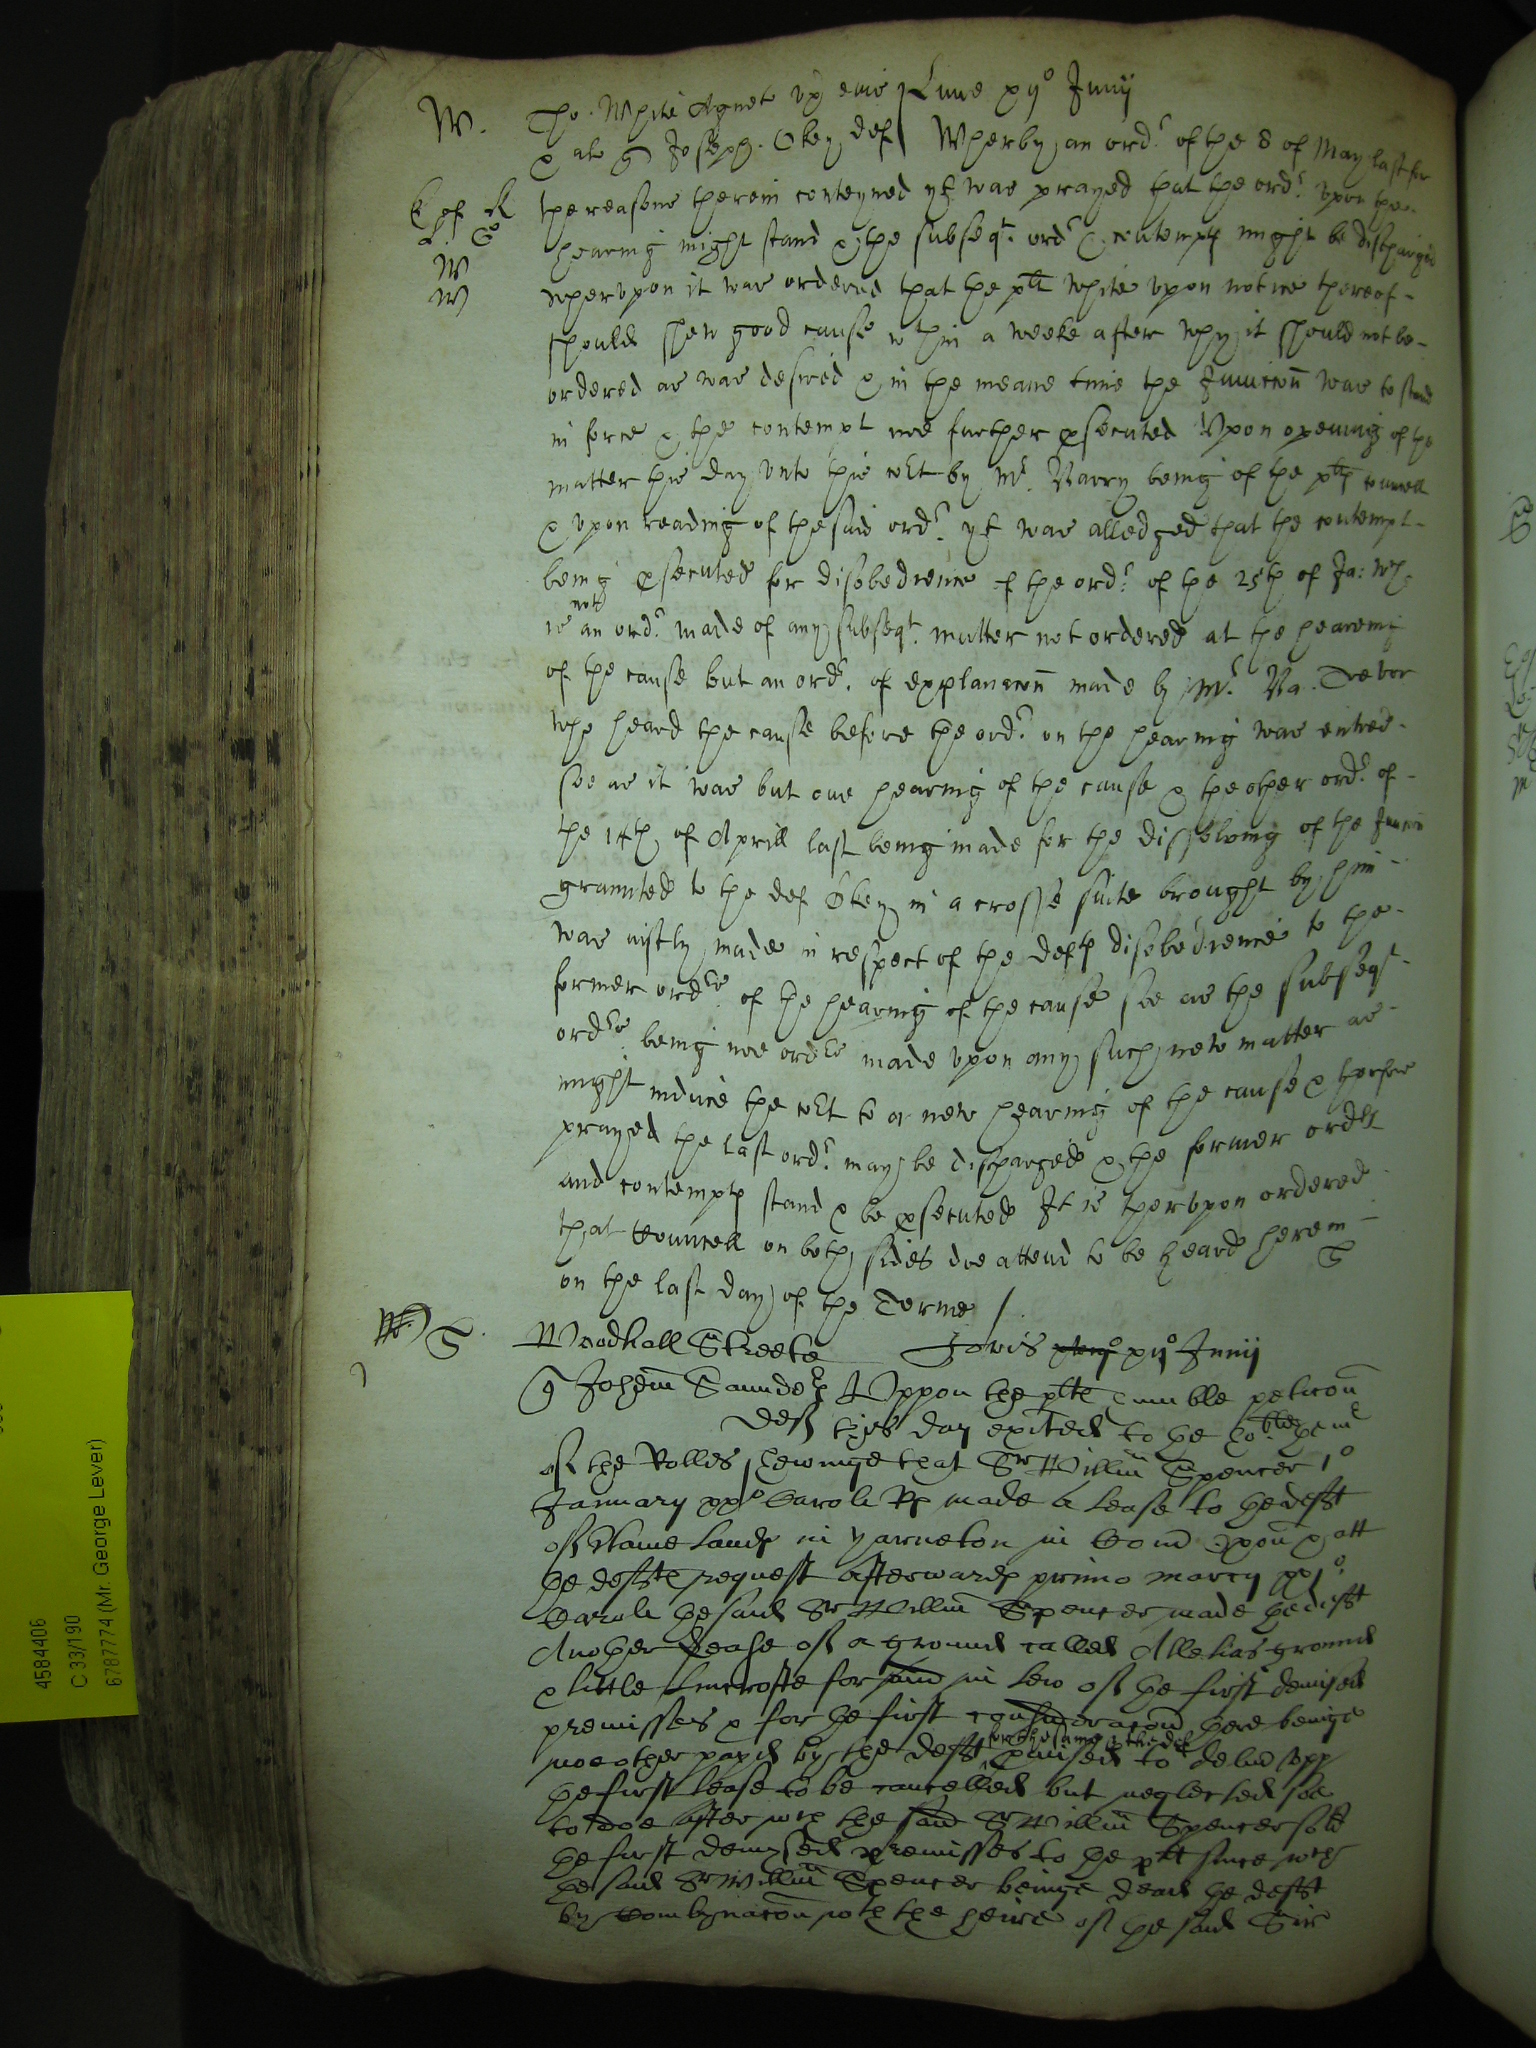 W. Tho. White Agnet ux eius Lune xij° Junij
& al q Joseph. Okey def Wherby an ord.r of the 8 of May last for
E of R the reasons therein conteyned yt was prayed that the ord.r upon the
L. G hearing might stand & the subseqt. ordr & contempt might be discharged
W
W wherupon it was ordered that the plt White upon notice thereof
should shew good cause wthin a weeke after why it should not be
ordered as was desired & in the meane time the Iniuccon was to stand
in force & the contempt noe further psecuted Upon opening of the
matter this day unto this cot by Mr. being of the plts councell
& upon reading of the said ord.r yt was alledged that the contempt
being psecuted for disobedience of the ord.r of the 25th of Ja: wch
not
is an ord.r made of any subseqt. matter not ordered at the heareing
of the cause but an ord.r of explanacon made by Mr.
who heard the cause before the ord.r on the hearing was entred
soe as it was but one hearing of the cause & the other ord.r of
the 14th of Aprill last being made for the dissolving of the
graunted to the def Okey in a crosse suite brought by him
was iustly made in respect of the defts disobedience to the
former ordrs of the hearing of the cause soe as the subseqt
ordrs being noe ordrs made upon any such new matter as
might induce the cot to a new hearing of the cause & therfore
prayed the last ord.r may be discharged & the former ordrs
and contempts stand & be psecuted It is therupon ordered
that Councell on both sides doe attend to be heard herein
on the last day of the Terme
S. Woodhall Streete Jovis xij° Junij
q Johem Saunders Uppon the plts humble peticon
deft this day exited to the ho:ble the mr
of the Rolles shewinge that Sr Willm Spencer 1°
January xx° Caroli Rs made a lease to the deft
of some lands in Yarneton in Com Oxon & att
the defts request afterwards primo marcij
Caroli the said Sr Willm Spencer made the deft
Another Lease of a ground called ground
& little for said in lew of the first demised
premisses & for the first consideracon there beinge
for the same & the deft
noe other payd by the deft to deliver upp
the first lease to be cancelled but neglected soe
to doe After wch the said Sr Willm Spencer sold
the first demysed premisses to the plt since wch
the said Sr Willm Spencer beinge dead the deft
by Combynacon wth the heire of the said Sir
4584406
C 33/190
6787774 (Mr. George Lever)